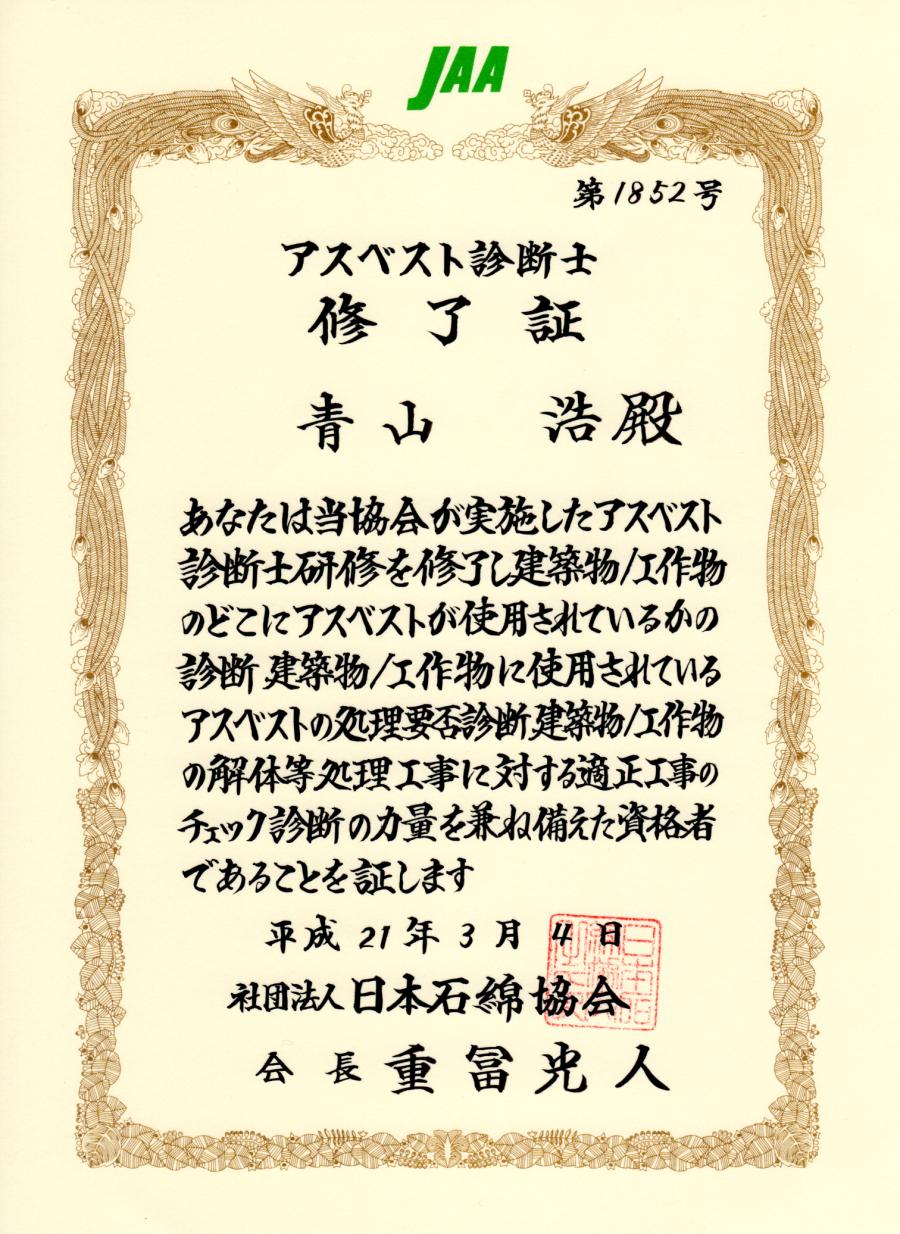 JAA
第1852号
アスベスト診断士
修了証
青山 浩殿
あなたは当協会が実施したアスベスト
診断士研修を修了し建築物/工作物
のどこにアスベストが使用されているかの
診断、建築物/工作物に使用されている
アスベストの処理要否診断、建築物/工作物
の解体等処理工事に対する適正工事の
チェック診断の力量を兼ね備えた資格者
であることを証します
平成21年3月4日
社団法人日本石綿協会
会長 重冨光人